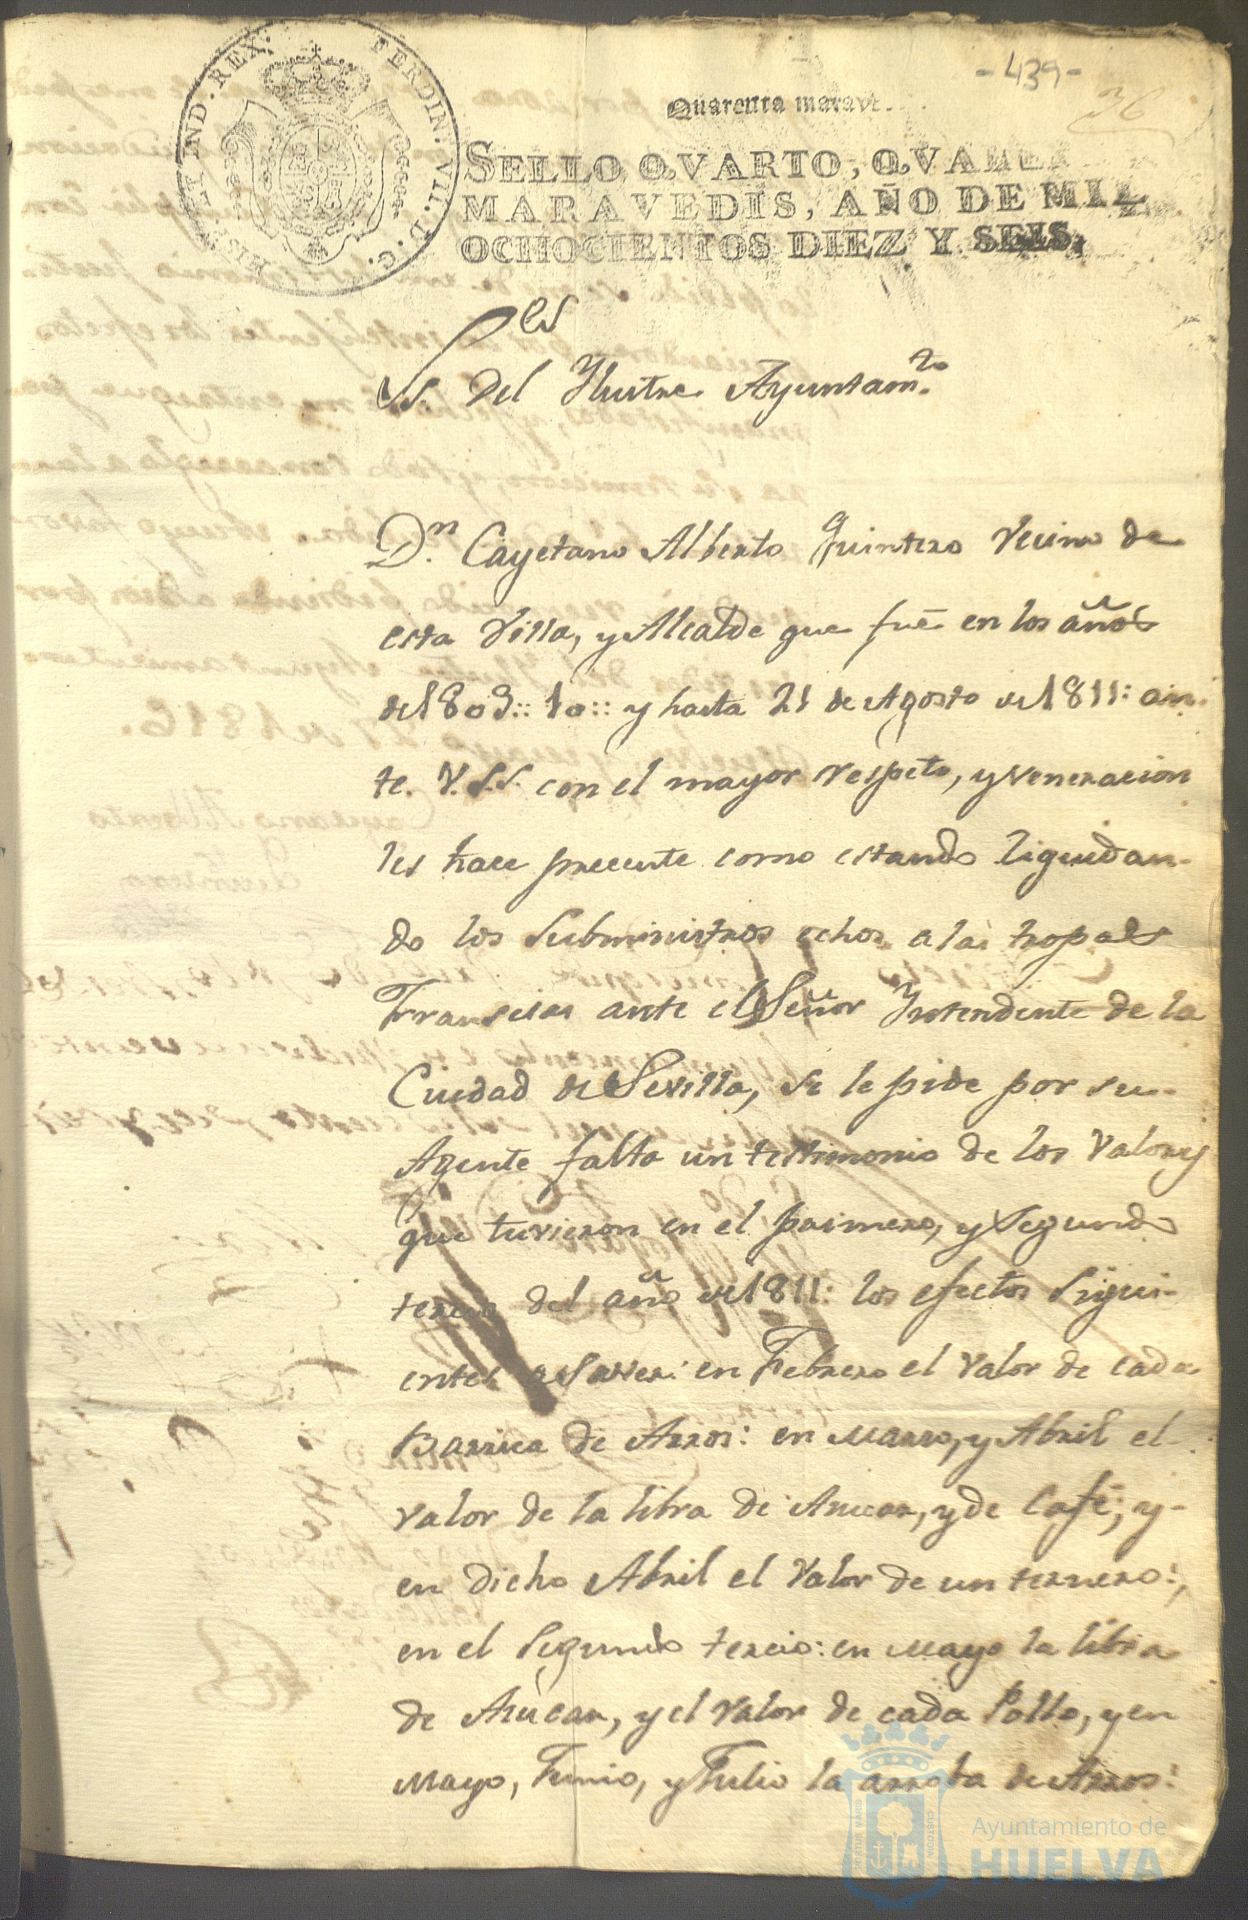 - 439 -
36
Quarenta marave
HISP. ET IND. REX. FERDIN. VII. D. G.
SELLO QVARTO, QVAREN
MARAVEDIS, AÑO DE MIL
OCHOCIENTOS DIEZ Y SEIS.
S.res
SS. del Yltre. Ayuntam.to
D.n Cayetano Alberto Quintero Vecino de
esta Villa, y Alcalde que fué en los años
de 1809:: 10:: y hasta 21 de Agosto de 1811: an-
te. V.S.S. con el mayor respeto, y veneracion
les hace precente como estando liquidan-
do los Subministros echos a las tropas
Francesas ante el Señor Yntendente de la
Ciudad de Sevilla, se le pide por su
Agente falta un testimonio de los Valores
que tuvieron en el primero, y Segundo
tercio del año de 1811: los efectos Sigui-
entes a Saver: en Febrero el Valor de cada
Barrica de Arros: en Marso, y Abril el
Valor de la libra de Asucar, y de Café; y
en dicho Abril el Valor de un ternero:,
en el Segundo tercio: en Mayo la libra
de Asucar, y el Valor de cada Pollo, y en
Mayo, Junio, y Julio la arroba de Arros:
Ayuntamiento de
HUELVA